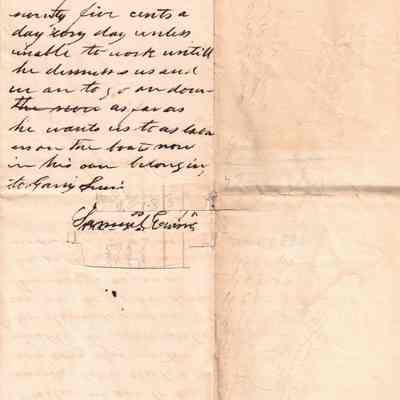 seventy five cents a
day every day unless
unable to work untill
he dismisses us and
we are to go on down
the river as far as
he wants us to as labo
ers on the boat now
in his care belonging
to
Samuel